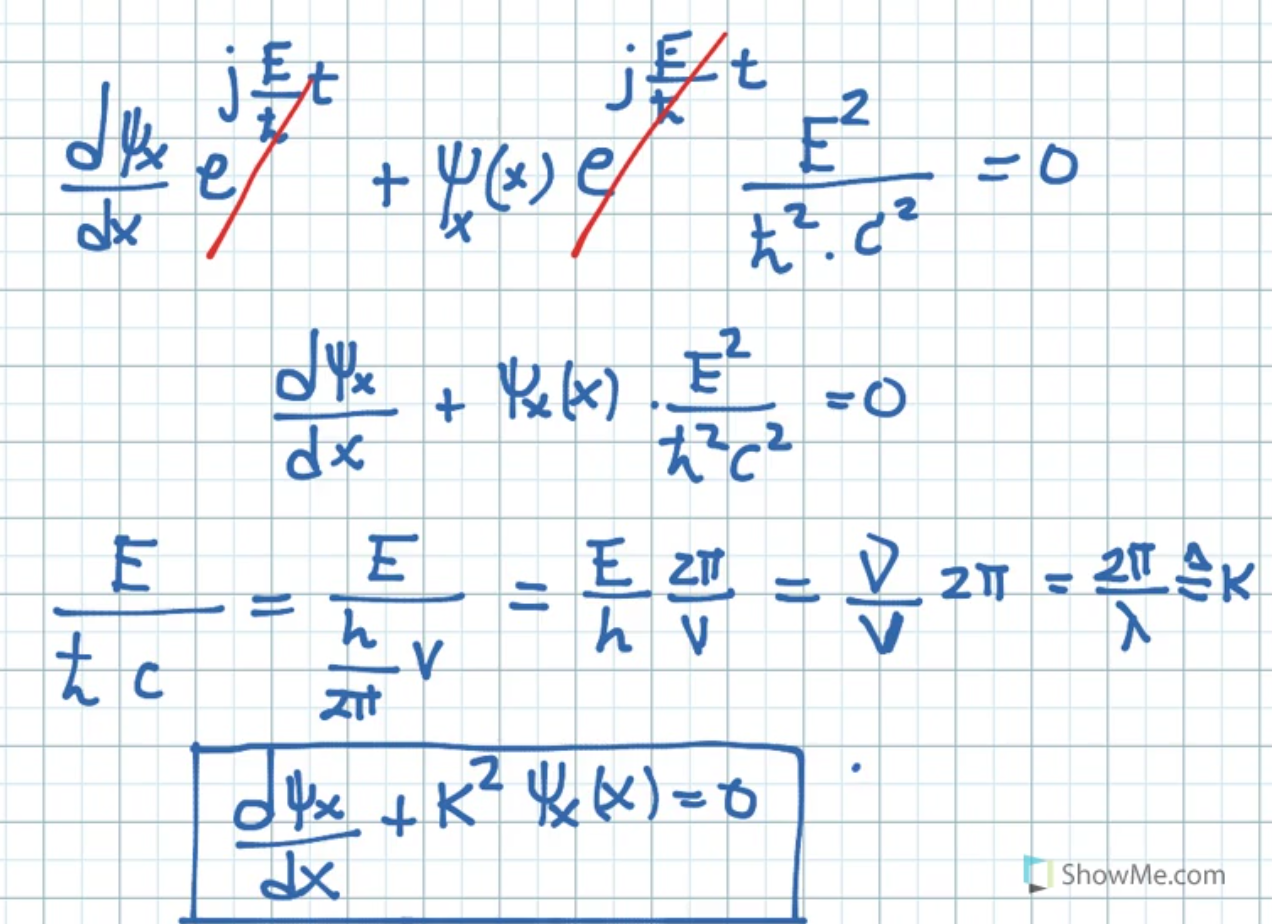 dψx/dx e^(j E/ħ t) + ψx(x) e^(j E/ħ t) E²/(ħ² · c²) = 0
dψx/dx + ψx(x) · E²/(ħ²c²) = 0
E/(ħ c) = E/((h/2π) v) = E/h 2π/v = ν/v 2π = 2π/λ ≜ K
dψx/dx + K² ψx(x) = 0
ShowMe.com